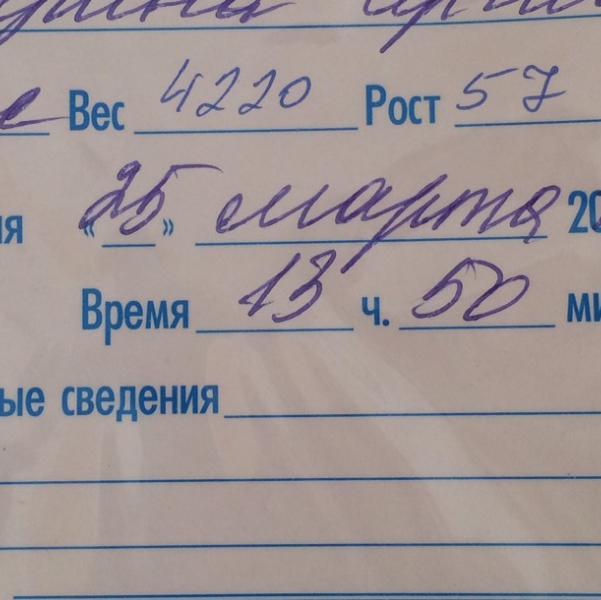 Вес 4220 Рост 57
ия «25» марта 20
Время 13 ч. 50 ми
ые сведения